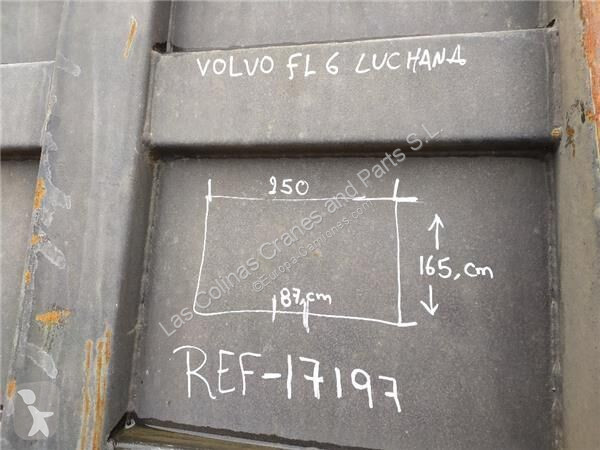 VOLVO FL6 LUCHANA
250
165,cm
87,cm
REF-17197
Las Colinas Cranes and Parts S.L
©Europa-Camiones.com